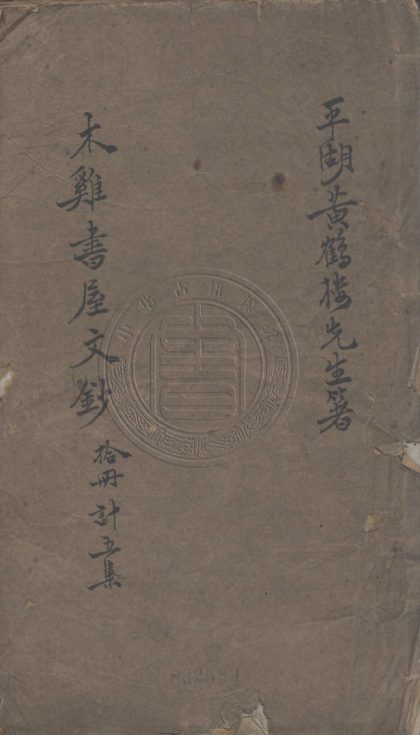 平湖黃鶴楼先生箸
木雞書屋文鈔
拾冊計五集